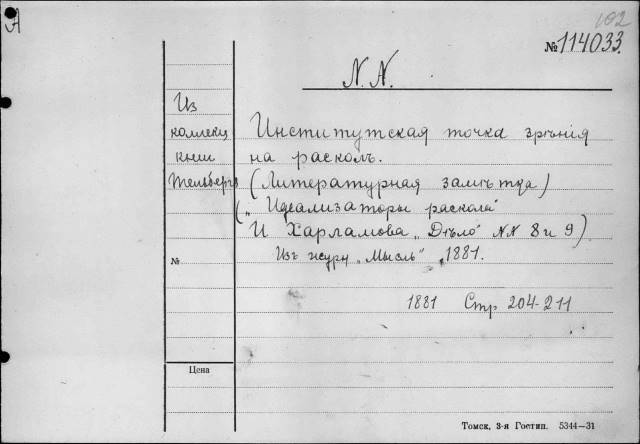 А
102
№ 114033.
N. N.
Из
коллекц
книг
Тельберга
Институтская точка зрѣнія
на расколъ.
(Литературная замѣтка)
(„Идеализаторы раскола"
И Харламова „Дѣло" №№ 8 и 9)
Изъ журн „Мысль", 1881.
№
1881 Стр 204-211
Цена
Томск, 3-я Гостип. 5344—31